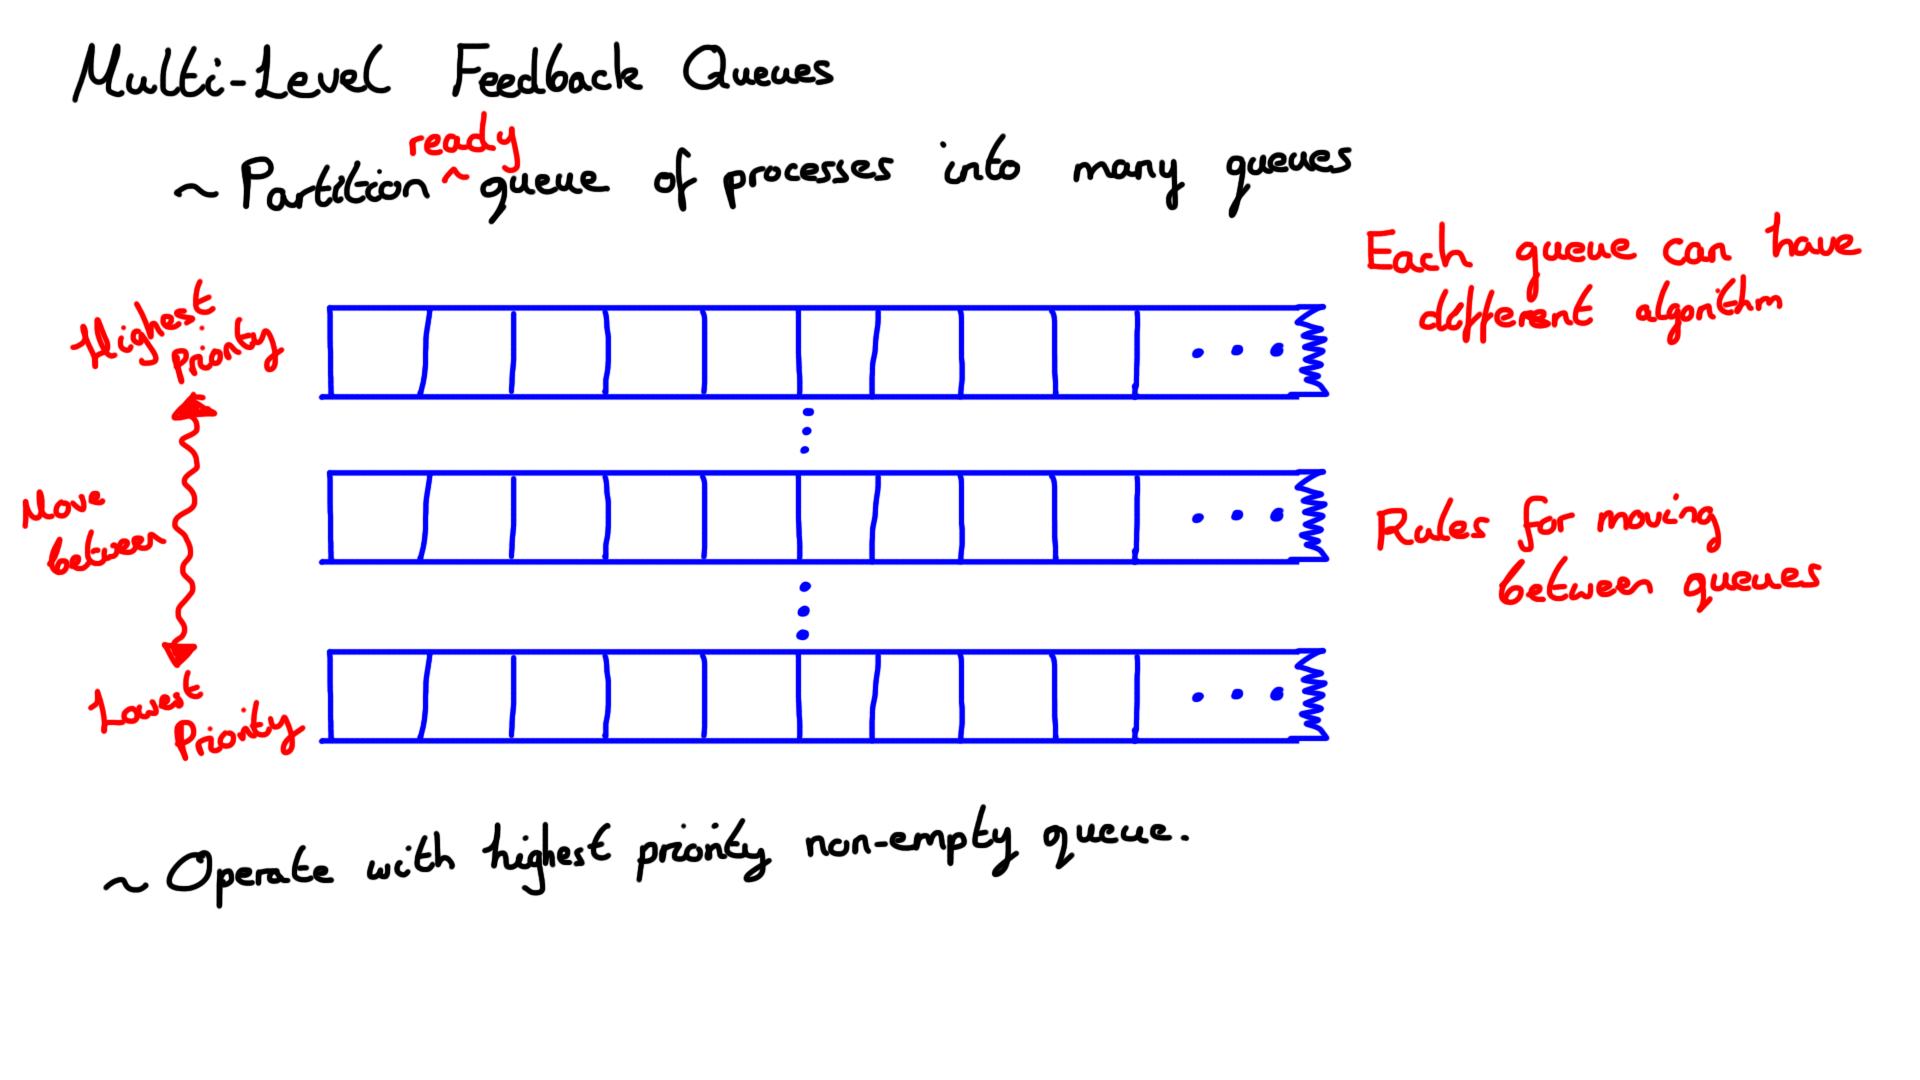 Multi-Level Feedback Queues
~ Partition ^ready queue of processes into many queues
Each queue can have
different algorithm
Highest
Priority
Move
between
Lowest
Priority
Rules for moving
between queues
~ Operate with highest priority non-empty queue.